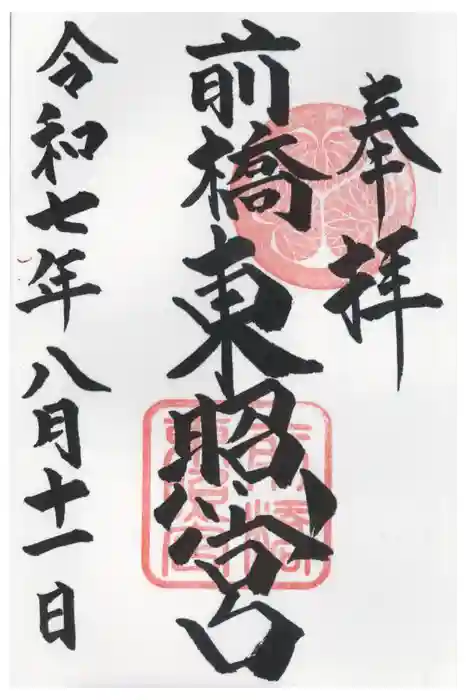 奉拝
前橋東照宮
令和七年八月十一日
前橋
東照宮